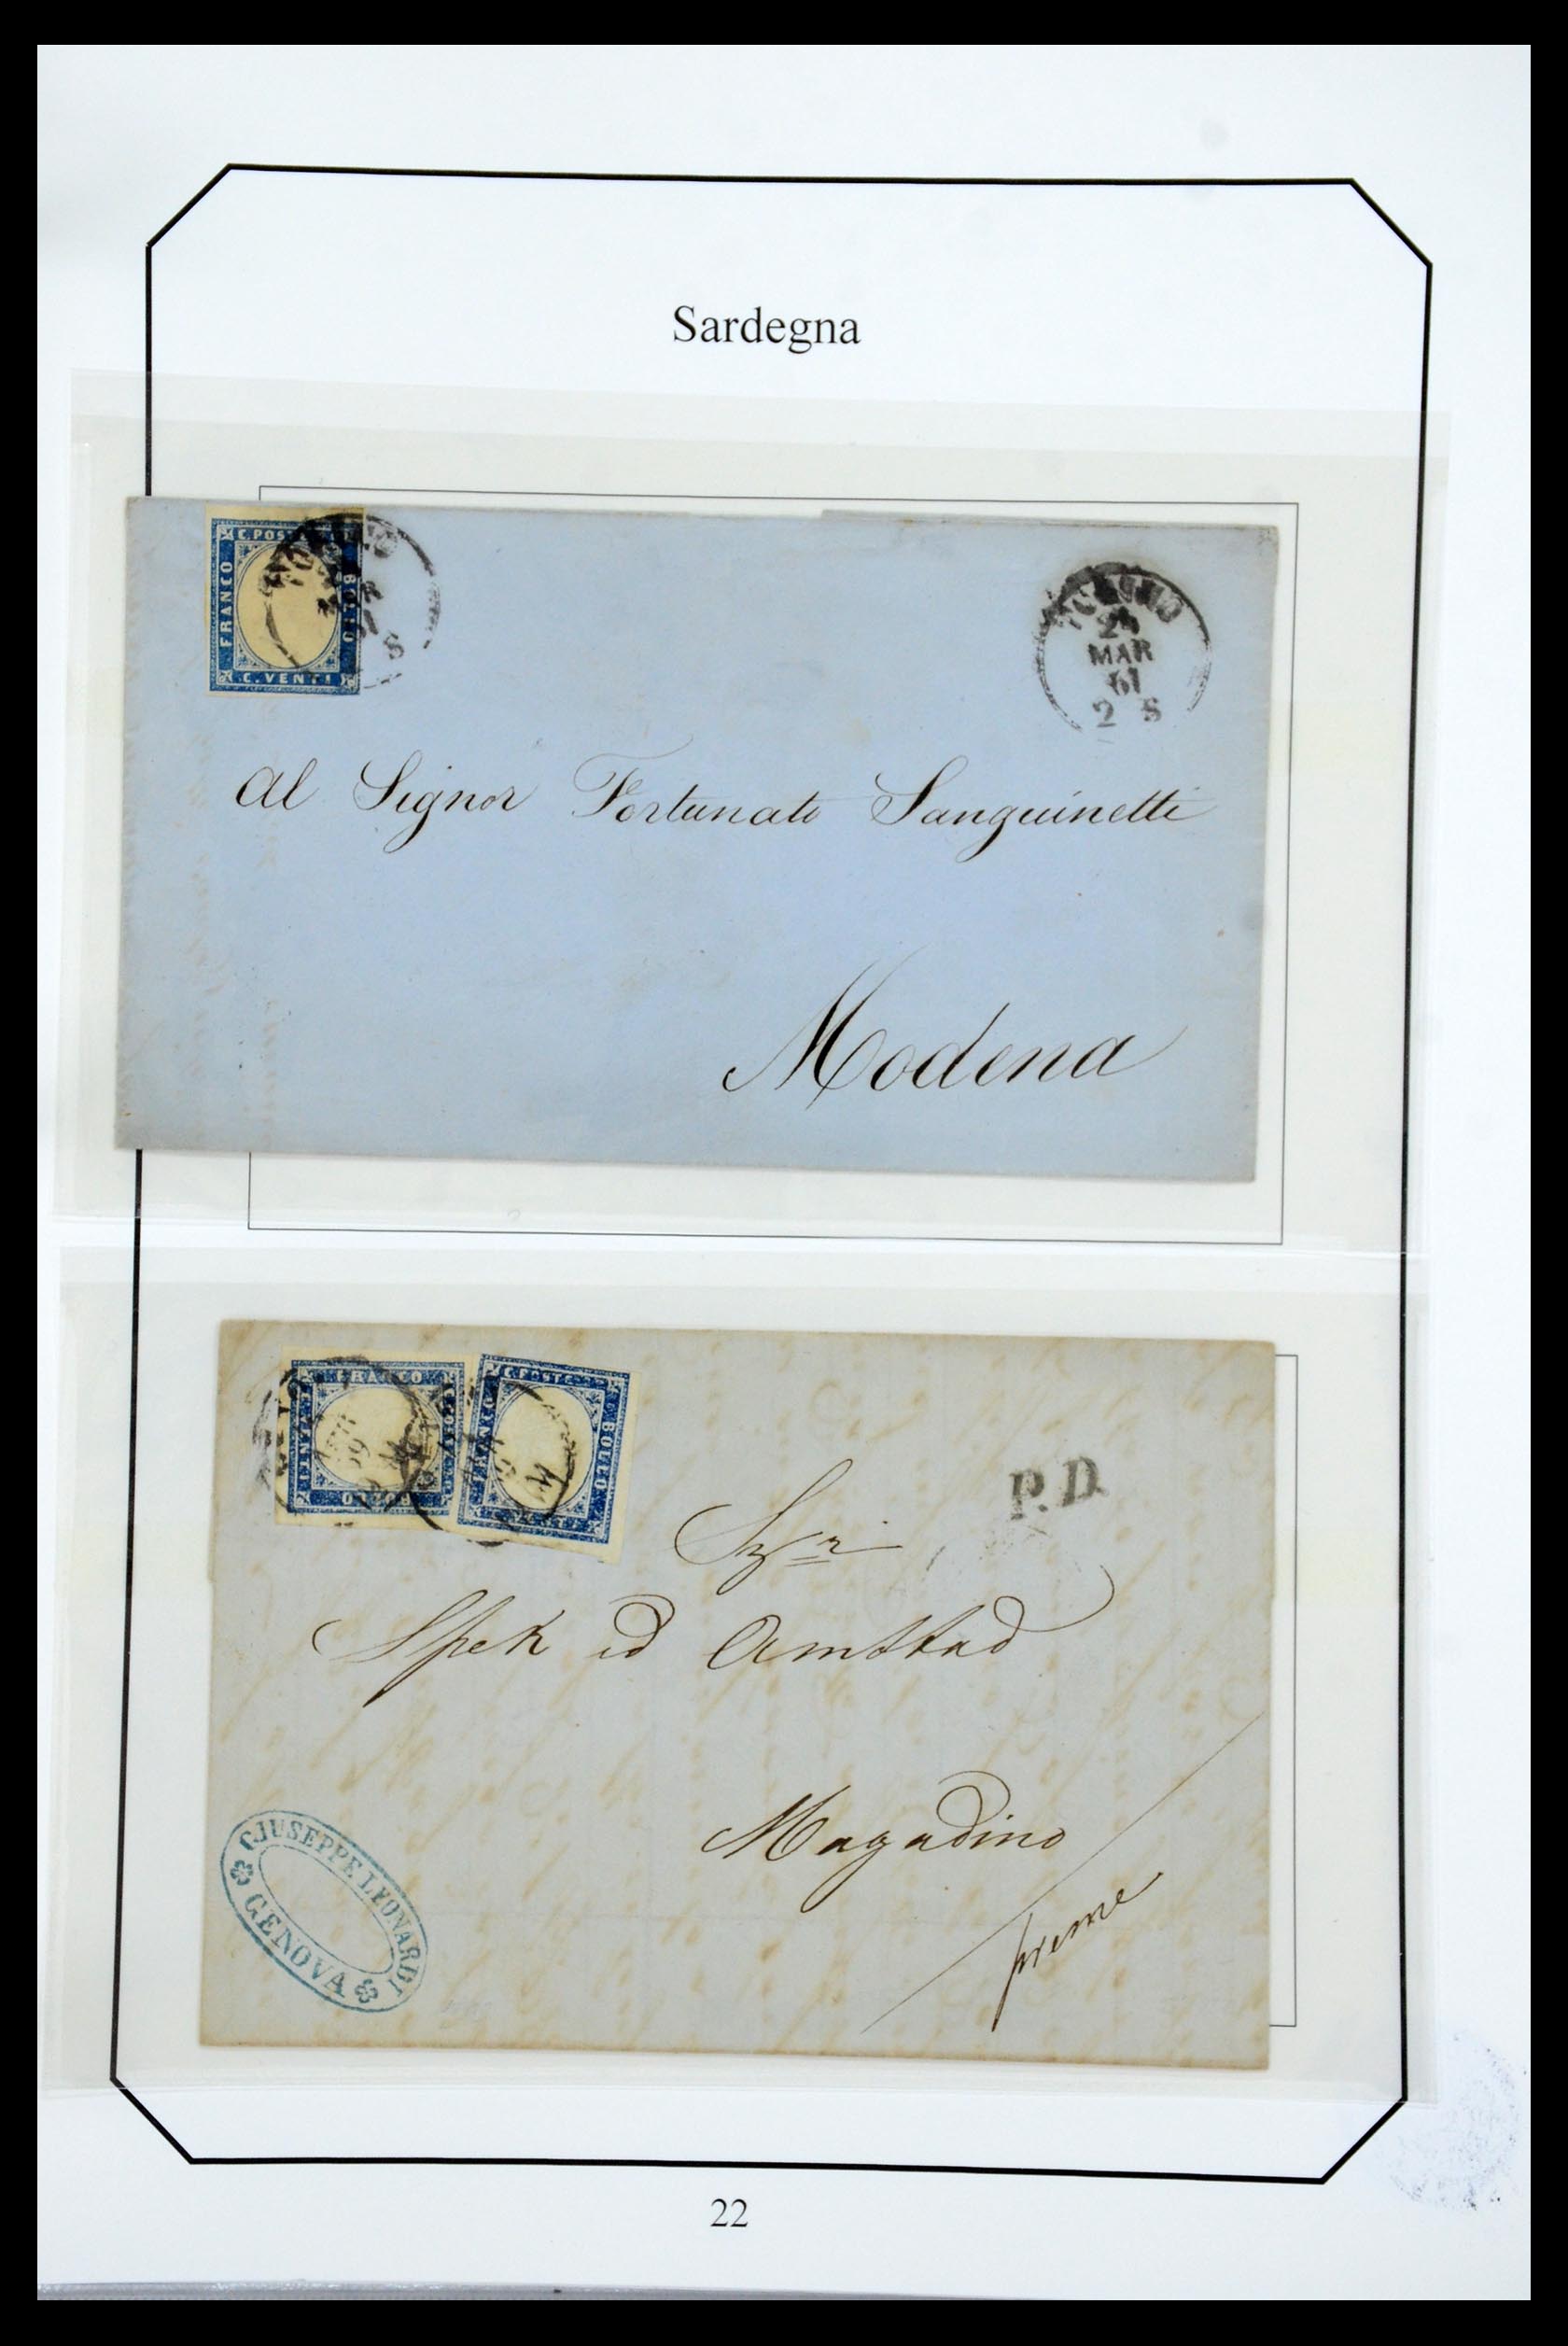 Sardegna
C. POSTE
FRANCO
BOLLO
C. VENTI
24
MAR
61
2 S
Al Signor Fortunato Sanguinetti
Modena
FRANCO
C. VENTI
C. POSTE
BOLLO
C. POSTE
FRANCO
BOLLO
P.D.
Spek ed Amstad
Magadino
preme
GIUSEPPE LEONARDI
GENOVA
22